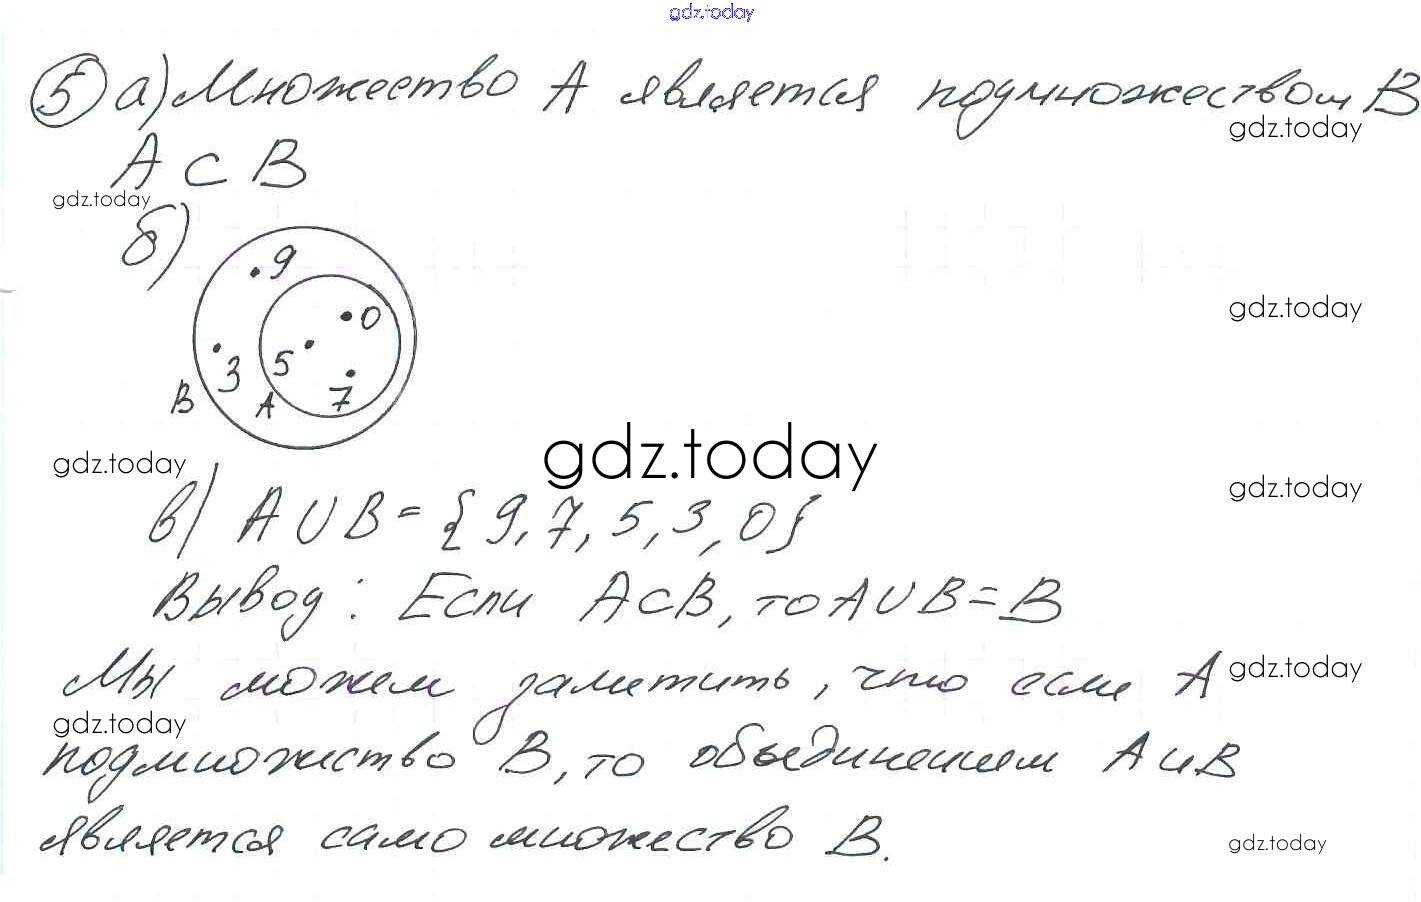 gdz.today
5 а) Множество А является подмножеством В
gdz.today
А ⊂ В
gdz.today
б)
9
0
gdz.today
5
3
7
В
А
gdz.today
gdz.today
gdz.today
в) А ∪ В = {9, 7, 5, 3, 0}
Вывод: Если А⊂В, то А∪В=В
Мы можем заметить, что если А
gdz.today
gdz.today
подмножиство В, то объединением А и В
является само множество В.
gdz.today